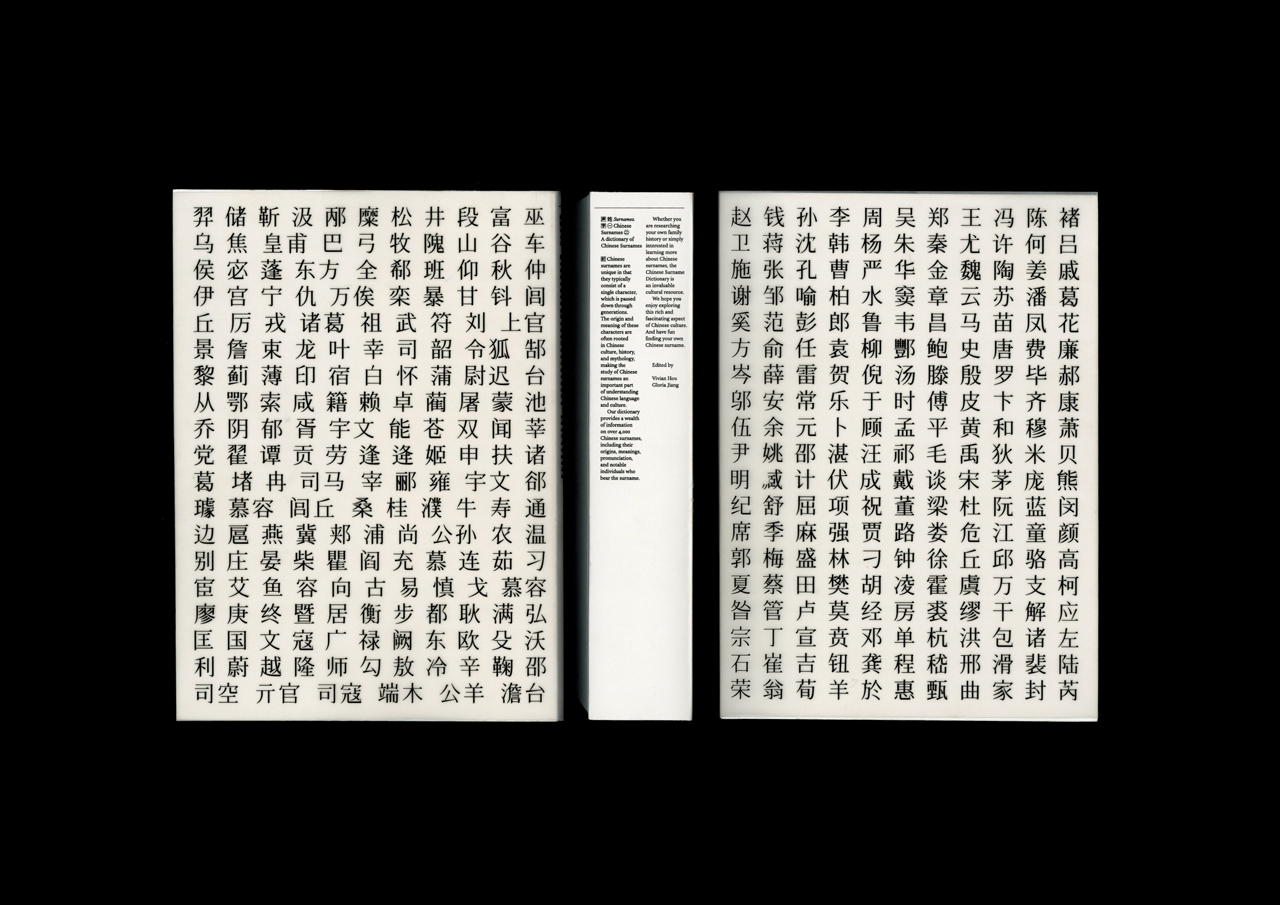 羿 储 靳 汲 邴 糜 松 井 段 富 巫
乌 焦 皇甫 巴 弓 牧 隗 山 谷 车
侯 宓 蓬 东方 全 郗 班 仰 秋 仲
伊 宫 宁 仇 万俟 栾 暴 甘 钭 闾
丘 厉 戎 诸葛 祖 武 符 刘 上官
景 詹 束 龙 叶 幸 司 韶 令狐 郜
黎 蓟 薄 印 宿 白 怀 蒲 尉迟 台
从 鄂 索 咸 籍 赖 卓 蔺 屠 蒙 池
乔 阴 郁 胥 宇文 能 苍 双 闻 莘
党 翟 谭 贡 劳 逄 逄 姬 申 扶
诸葛 堵 冉 司马 宰 郦 雍 宇文 郤
璩 慕容 闾丘 桑 桂 濮 牛 寿 通
边 扈 燕 冀 郏 浦 尚 公孙 农 温
别 庄 晏 柴 瞿 阎 充 慕 连 茹 习
宦 艾 鱼 容 向 古 易 慎 戈 慕容
廖 庚 终 暨 居 衡 步 都 耿 满 弘
匡 国 文 寇 广 禄 阙 东 欧 殳 沃
利 蔚 越 隆 师 勾 敖 冷 辛 鞠 邵
司空 亓官 司寇 端木 公羊 澹台
Surnames
Chinese
Surnames
A dictionary of
Chinese Surnames
Chinese
surnames are
unique in that
they typically
consist of a
single character,
which is passed
down through
generations.
The origin and
meaning of these
characters are
often rooted
in Chinese
culture, history,
and mythology,
making the
study of Chinese
surnames an
important part
of understanding
Chinese language
and culture.
Our dictionary
provides a wealth
of information
on over 4,000
Chinese surnames,
including their
origins, meanings,
pronunciation,
and notable
individuals who
bear the surname.
Whether you
are researching
your own family
history or simply
interested in
learning more
about Chinese
surnames, the
Chinese Surname
Dictionary is
an invaluable
cultural resource.
We hope you
enjoy exploring
this rich and
fascinating aspect
of Chinese culture.
And have fun
finding your own
Chinese surname.
Edited by
Vivian Hou
Gloria Jiang
赵 钱 孙 李 周 吴 郑 王 冯 陈 褚
卫 蒋 沈 韩 杨 朱 秦 尤 许 何 吕
施 张 孔 曹 严 华 金 魏 陶 姜 戚
谢 邹 喻 柏 水 窦 章 云 苏 潘 葛
奚 范 彭 郎 鲁 韦 昌 马 苗 凤 花
方 俞 任 袁 柳 酆 鲍 史 唐 费 廉
岑 薛 雷 贺 倪 汤 滕 殷 罗 毕 郝
邬 安 常 乐 于 时 傅 皮 卞 齐 康
伍 余 元 卜 顾 孟 平 黄 和 穆 萧
尹 姚 邵 湛 汪 祁 毛 禹 狄 米 贝
明 臧 计 伏 成 戴 谈 宋 茅 庞 熊
纪 舒 屈 项 祝 董 梁 杜 阮 蓝 闵
席 季 麻 强 贾 路 娄 危 江 童 颜
郭 梅 盛 林 刁 钟 徐 丘 邱 骆 高
夏 蔡 田 樊 胡 凌 霍 虞 万 支 柯
昝 管 卢 莫 经 房 裘 缪 干 解 应
宗 丁 宣 贲 邓 单 杭 洪 包 诸 左
石 崔 吉 钮 龚 程 嵇 邢 滑 裴 陆
荣 翁 荀 羊 於 惠 甄 曲 家 封 芮